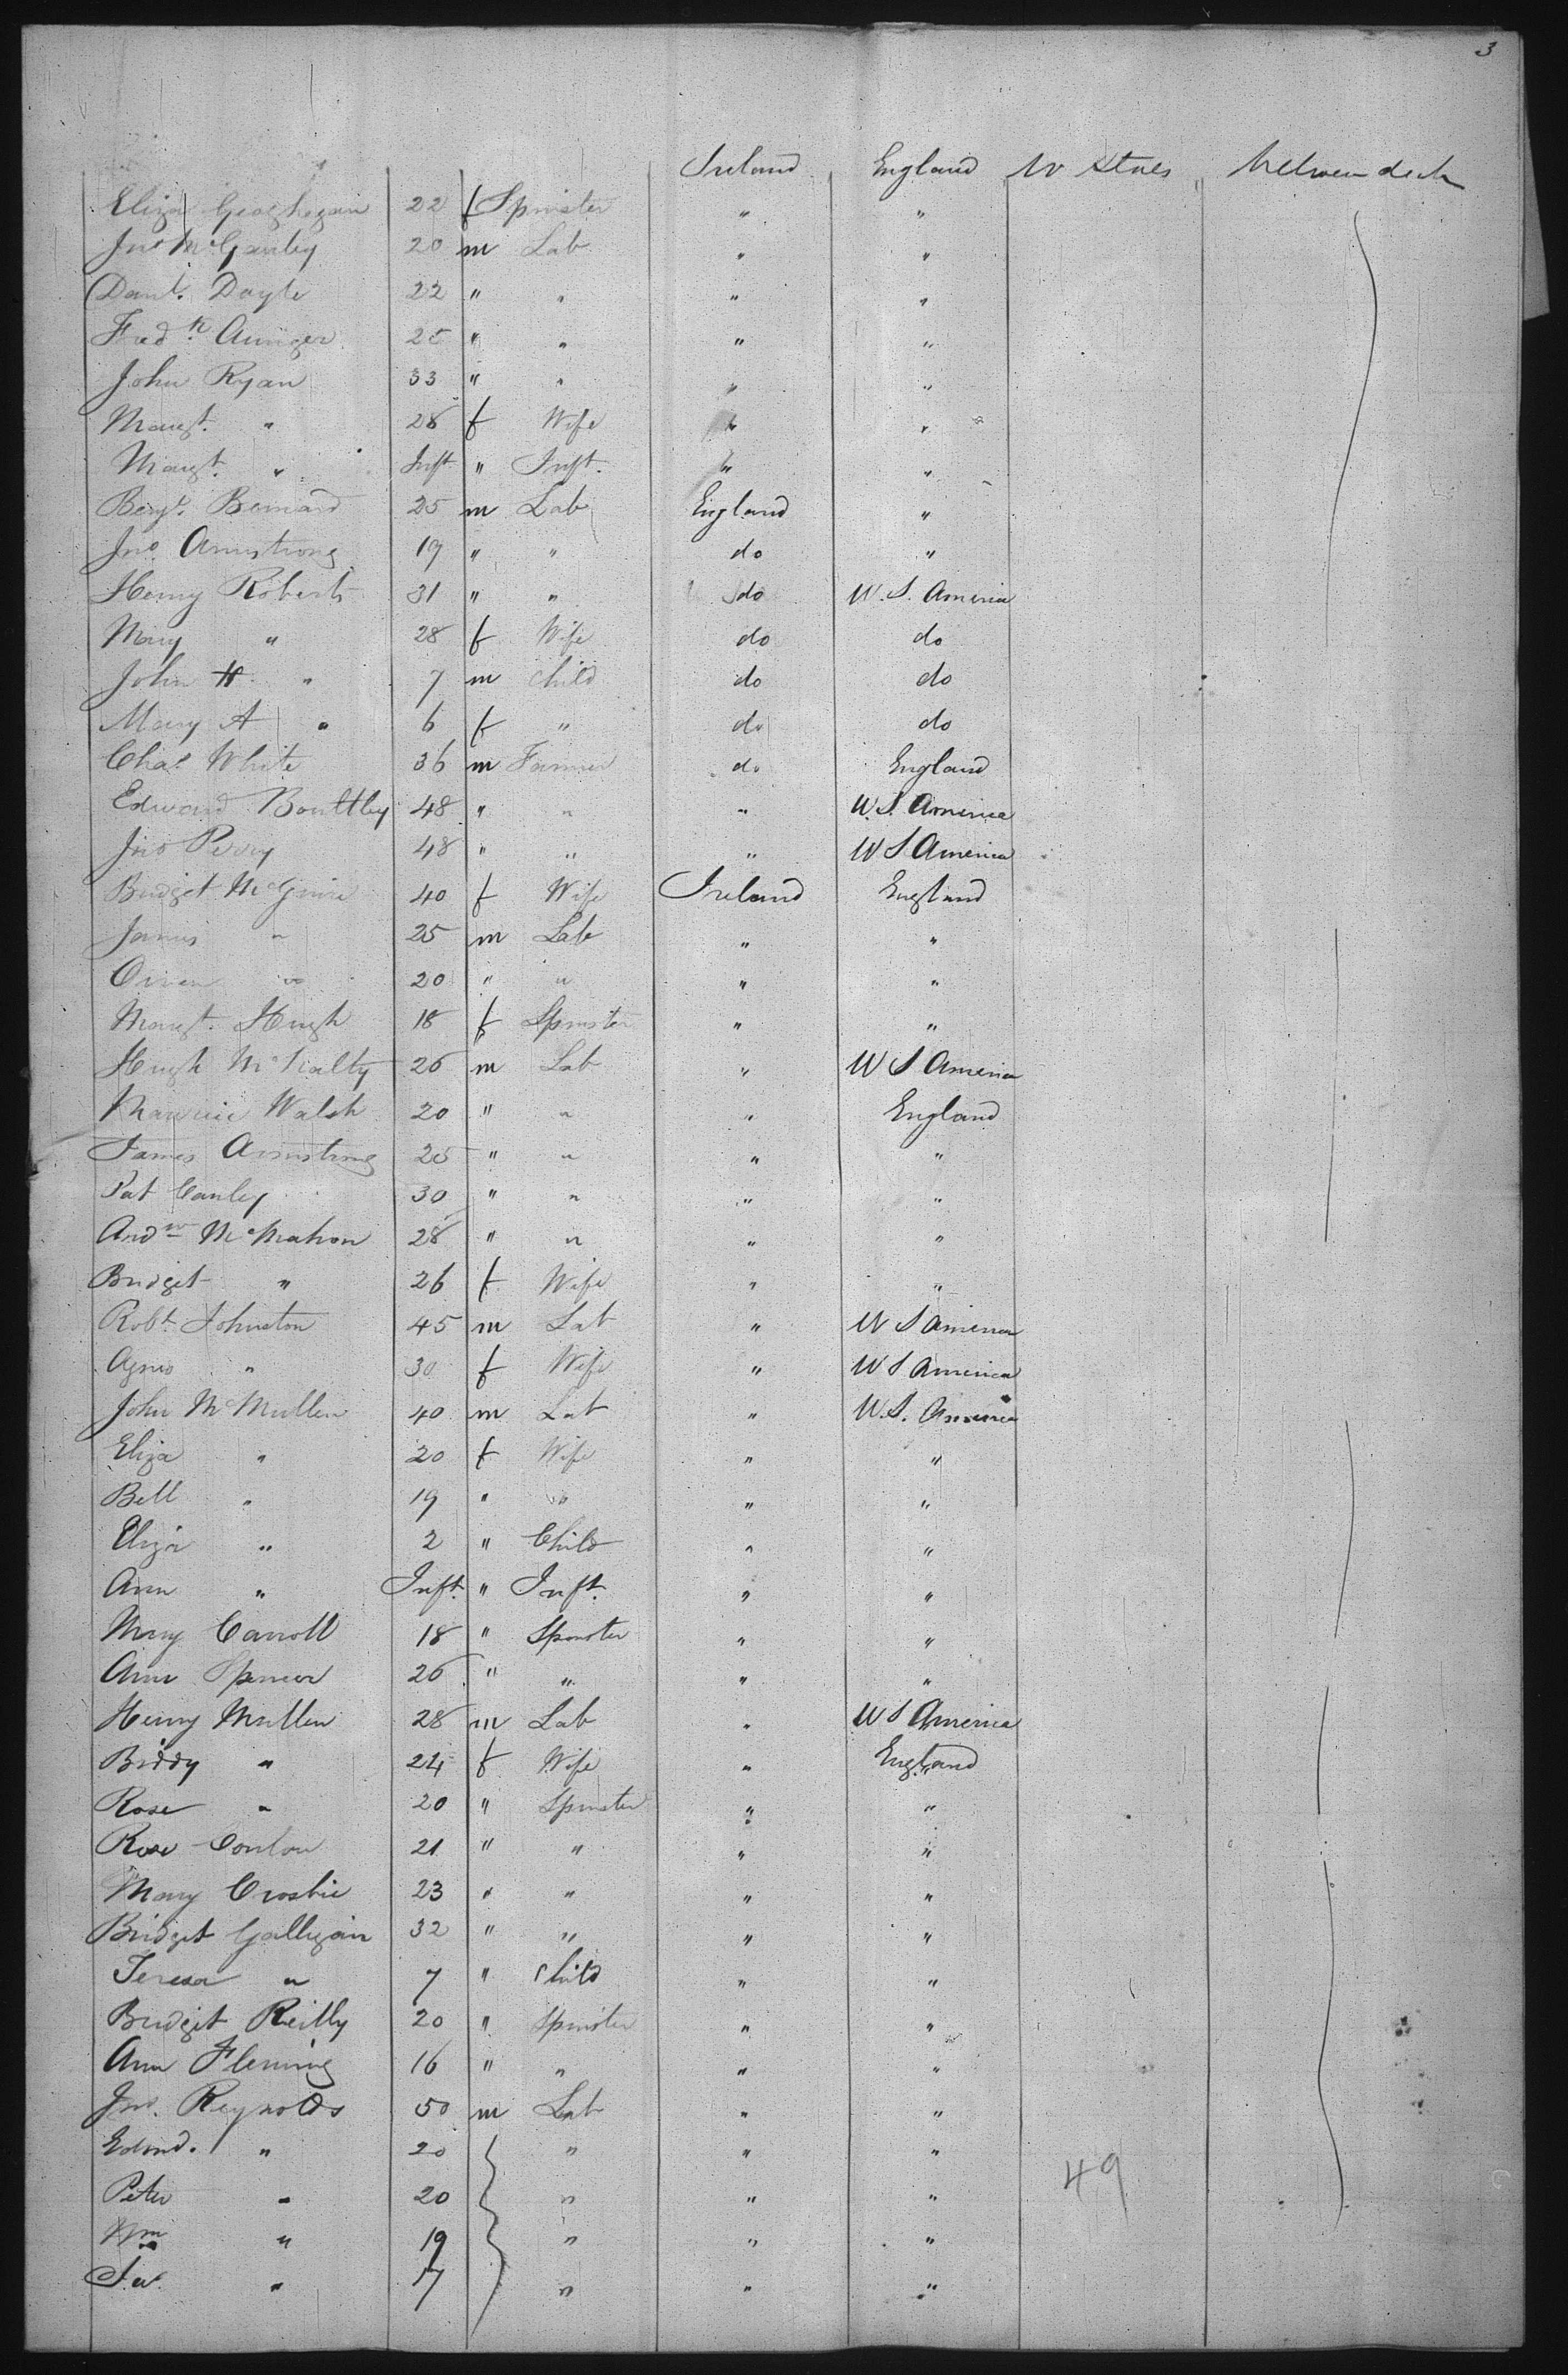 3
Ireland England U States Between deck
Eliza Geoghegan 22 f Spinster " "
Jno McGanley 20 m Lab " "
Danl. Doyle 22 " " " "
Fredk. Auniger 25 " " " "
John Ryan 33 " " " "
Margt. " 28 f Wife " "
Margt. " Inft " Inft. " "
Benj. Bernard 25 m Lab England "
Jno. Armstrong 19 " " do "
Henry Roberts 31 " " do U.S. America
Mary " 28 f Wife do do
John H " 7 m child do do
Mary A " 6 f " do do
Chas White 36 m Farmer do England
Edward Bouttley 48 " " " U.S. America
Jno Perry 48 " " " U S America
Bridget McGuire 40 f Wife Ireland England
James " 25 m Lab " "
Owen " 20 " " " "
Margt. Hugh 18 f Spinster " "
Hugh McNalty 26 m Lab " U S America
Maurice Walsh 20 " " " England
James Armstrong 25 " " " "
Pat Canley 30 " " " "
Andw McMahon 28 " " " "
Bridget " 26 f Wife " "
Robt. Johnston 45 m Lab " U S America
Agnes " 30 f Wife " U S America
John McMullen 40 m Lab " U.S. America
Eliza " 20 f Wife " "
Bell " 19 " " " "
Eliza " 2 " Child " "
Ann " Inft. " Inft. " "
Mary Carroll 18 " Spinster " "
Ann Spencer 26 " " " "
Henry Mullen 28 m Lab " U S America
Biddy " 24 f Wife " England
Rose " 20 " Spinster " "
Rose Conlon 21 " " " "
Mary Crosbie 23 " " " "
Bridget Galligan 32 " " " "
Teresa " 7 " Child " "
Bridget Reilly 20 " Spinster " "
Ann Fleming 16 " " " "
Jno. Reynolds 50 m Lab " "
Edmd. " 20 " " "
Peter " 20 " " " 49
Wm " 19 " " "
" 17 " " "